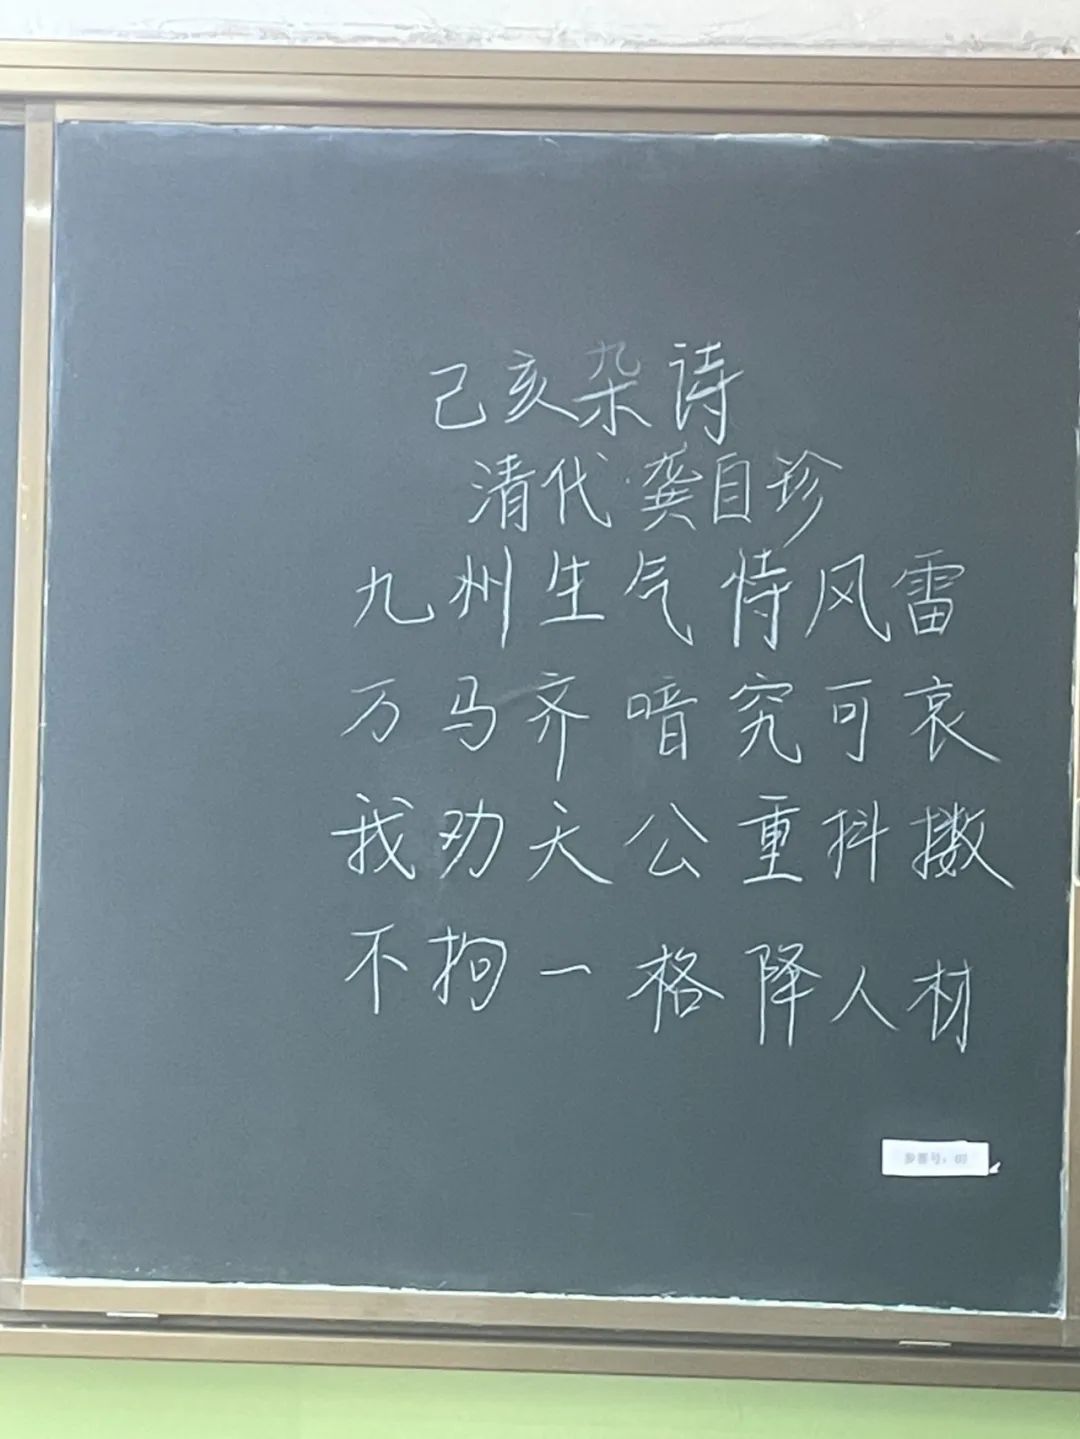 己亥杂诗
清代·龚自珍
九州生气恃风雷
万马齐喑究可哀
我劝天公重抖擞
不拘一格降人材
参赛号：07